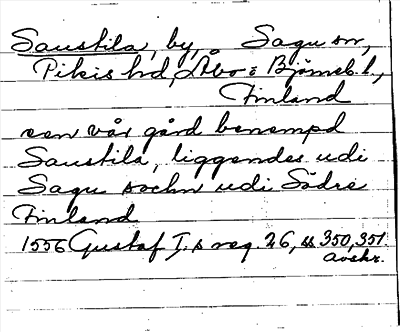 Saustila, by, Sagu sn,
Pikis hd, Åbo o Björneb. l.,
Finland
een vår gård benempd
Saustila, liggendes udi
Sagu sochn udi Södre
Finland
1556 Gustaf I.s reg. 26, ss 350, 351.
avskr.